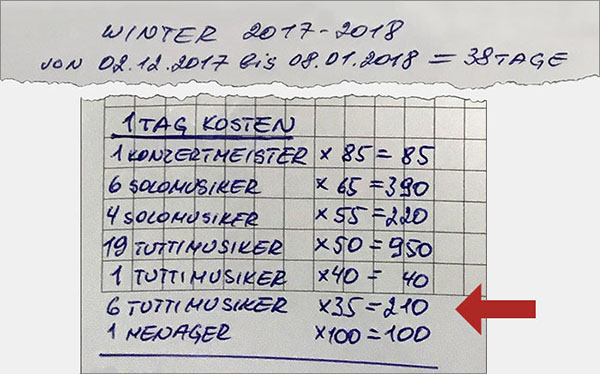 WINTER 2017-2018
VON 02.12.2017 bis 08.01.2018 = 38 TAGE
1 TAG KOSTEN
1 KONZERTMEISTER × 85 = 85
6 SOLOMUSIKER × 65 = 390
4 SOLOMUSIKER × 55 = 220
19 TUTTIMUSIKER × 50 = 950
1 TUTTIMUSIKER × 40 = 40
6 TUTTIMUSIKER × 35 = 210
1 MENAGER × 100 = 100